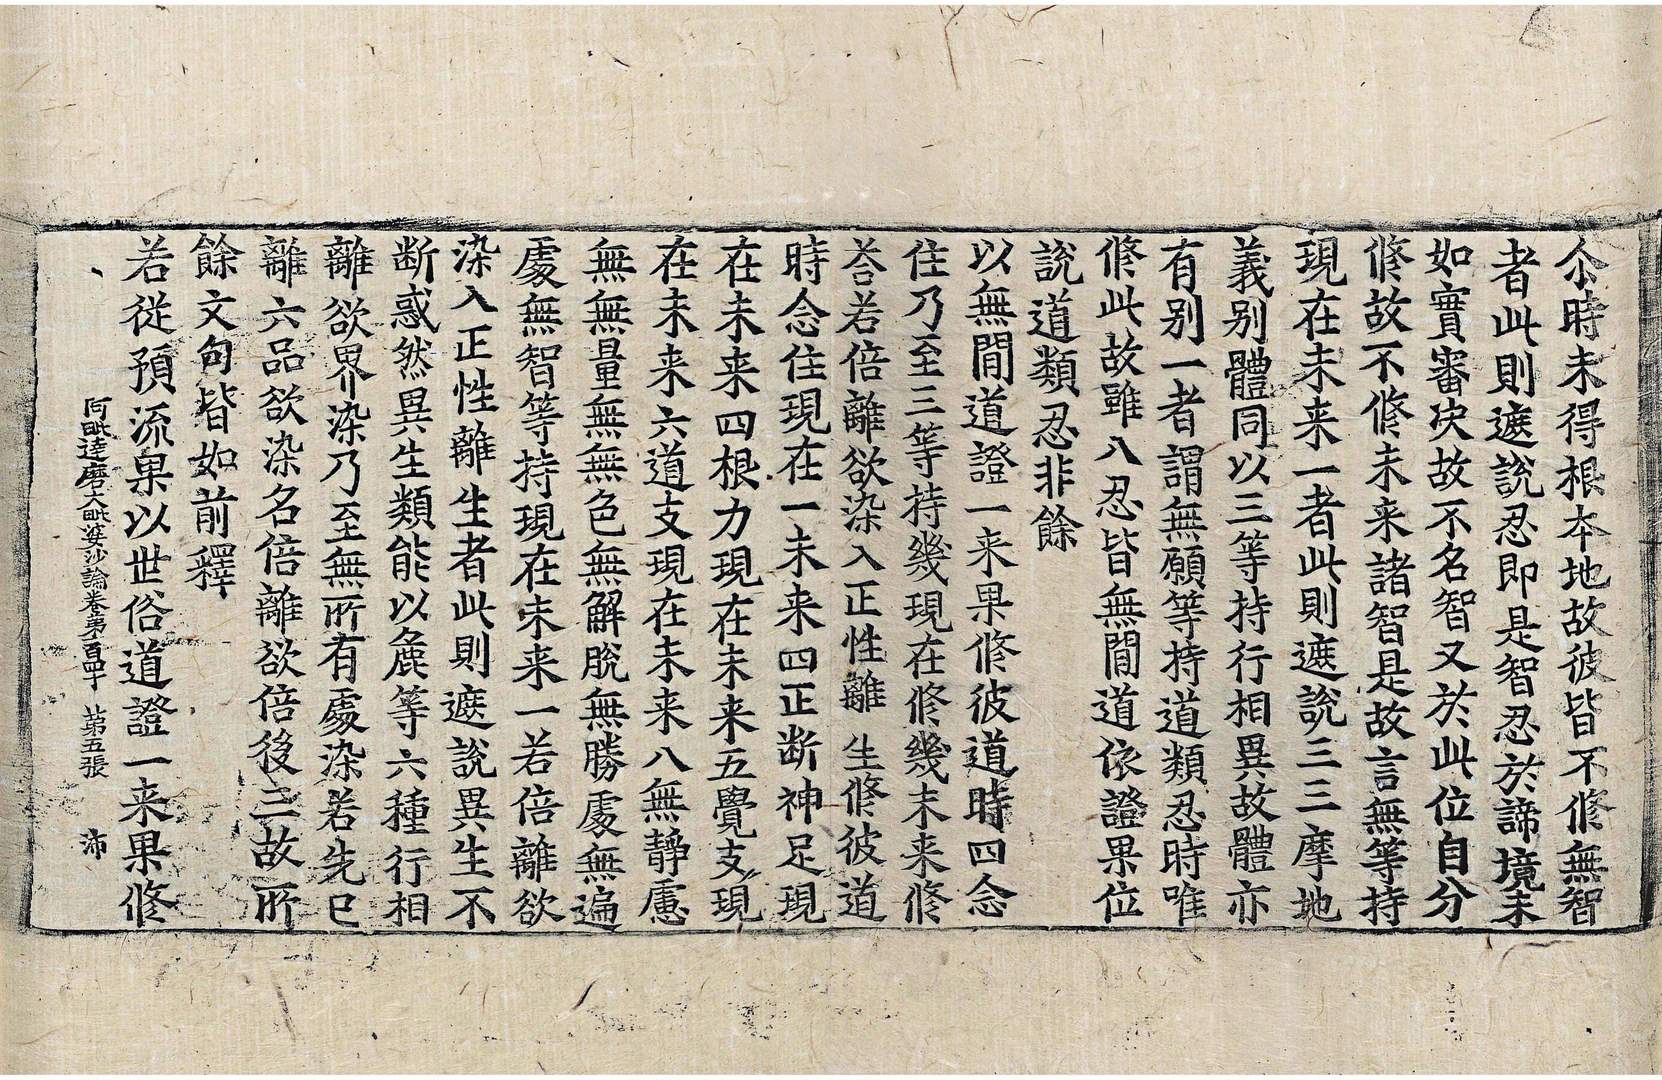 尒時未得根本地故彼皆不修無智
者此則遮說忍即是智忍於諦境未
如實審决故不名智又於此位自分
修故不修未来諸智是故言無等持
現在未来一者此則遮說三三摩地
義别體同以三等持行相異故體亦
有别一者謂無願等持道類忍時唯
修此故雖八忍皆無閒道依證果位
說道類忍非餘
以無閒道證一来果修彼道時四念
住乃至三等持幾現在修幾未来修
荅若倍離欲染入正性離生修彼道
時念住現在一未来四正断神足現
在未来四根力現在未来五覺支現
在未来六道支現在未来八無靜慮
無無量無無色無解脫無勝處無遍
處無智等持現在未来一若倍離欲
染入正性離生者此則遮說異生不
断惑然異生類能以麁等六種行相
離欲界染乃至無所有處染若先已
離六品欲染名倍離欲倍後三故所
餘文句皆如前釋
若從預流果以世俗道證一来果修
阿毗達磨大毗婆沙論卷第一百四十 第五張 沛